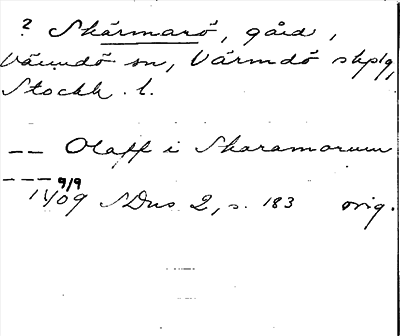 ? Skärmarö, gård,
Värmdö sn, Värmdö skplg,
Stockh. l.
-- Olaff i Skaramorum
--- 9/9
1409 SDns 2, s. 183 orig.